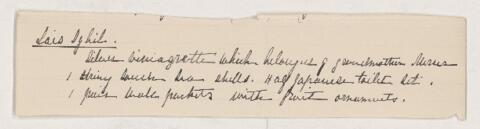 Lois Sybil.
Silver vinaigrette which belonged g grandmother
1 string tourson sea shells. Hag Japanese toilet set.
1 pair wall pockets with fruit ornaments.